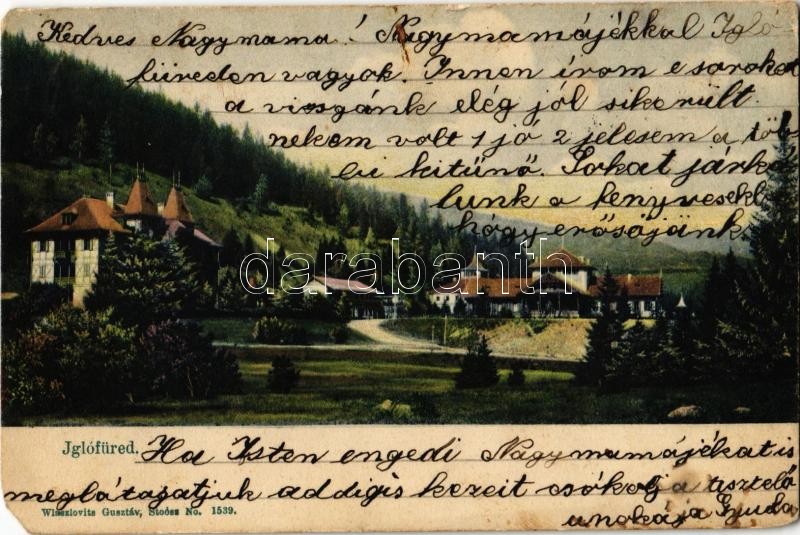 Kedves Nagymama! Nagymamájékkal Igló
füreden vagyok. Innen írom e sorokat
a vizsgánk elég jól sikerült.
nekem volt 1 jó 2 jelesem a töb
bi kitünő. Sokat járká
lunk a fenyvesekb
hogy erősöjünk
darabanth
Jglófüred.
Ha Isten engedi Nagymamájékat is
meglátogatjuk addigis kezeit csókolja tisztelő
unokája Gyuda
Wlaszlovits Gusztáv, Stoósz No. 1539.